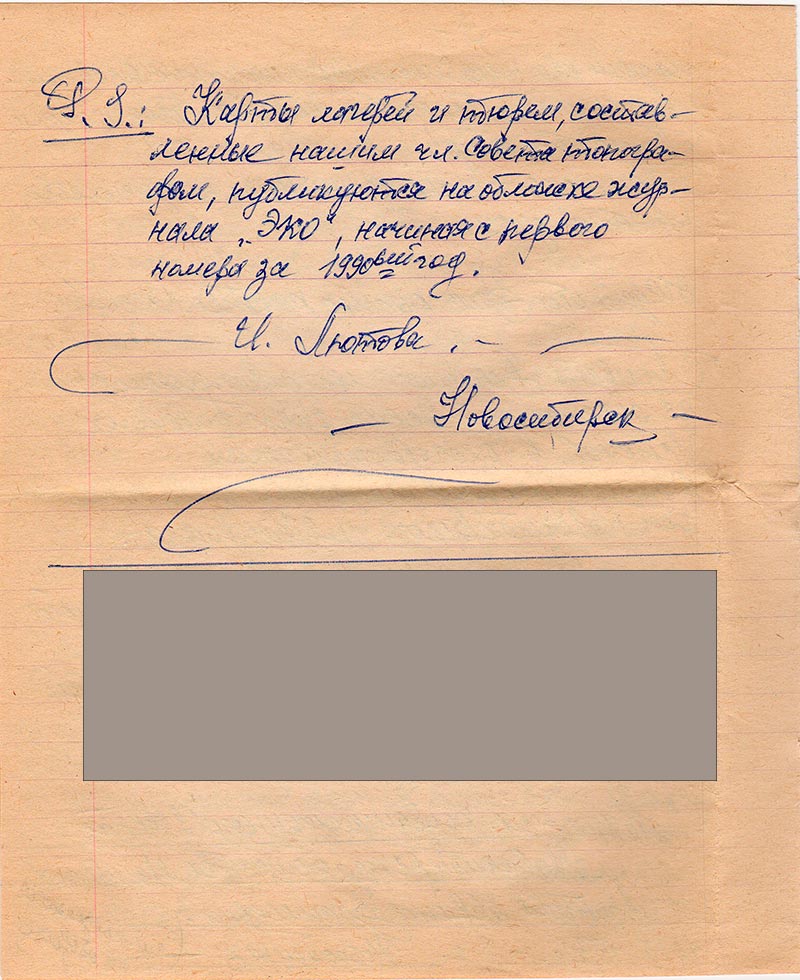 P. S.: Карты лагерей и тюрем, состав-
ленные нашим чл. Совета топогра-
фом, публикуются на обложке жур-
нала „ЭКО", начиная с первого
номера за 1990вый год.
И. Лютова.
Новосибирск